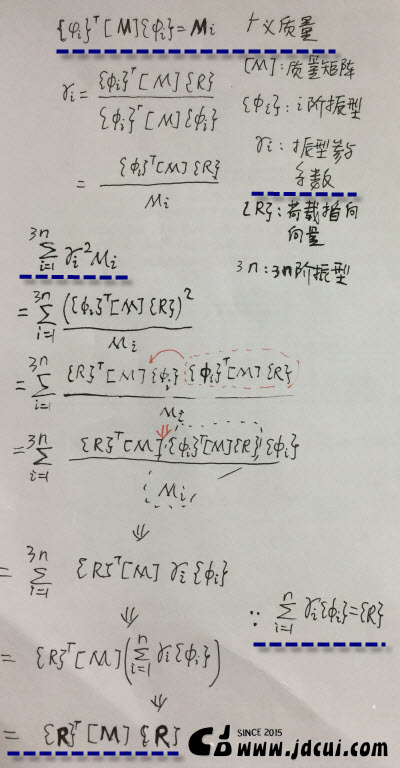 {φi}ᵀ[M]{φi}=Mi 广义质量
γi = {φi}ᵀ[M]{R} / {φi}ᵀ[M]{φi}
[M]:质量矩阵
{φi}:i阶振型
= {φi}ᵀ[M]{R} / Mi
γi:振型参与
系数
{R}:荷载指向
向量
3n:3n阶振型
∑_{i=1}^{3n} γi²Mi
= ∑_{i=1}^{3n} ({φi}ᵀ[M]{R})² / Mi
= ∑_{i=1}^{3n} {R}ᵀ[M]{φi}{φi}ᵀ[M]{R} / Mi
= ∑_{i=1}^{3n} {R}ᵀ[M]·{φi}ᵀ[M]{R}{φi} / Mi
⇓
= ∑_{i=1}^{3n} {R}ᵀ[M] γi{φi}
⇓
∵ ∑_{i=1}^{n} γi{φi}={R}
= {R}ᵀ[M](∑_{i=1}^{n} γi{φi})
⇓
= {R}ᵀ[M]{R}
SINCE 2015
www.jdcui.com